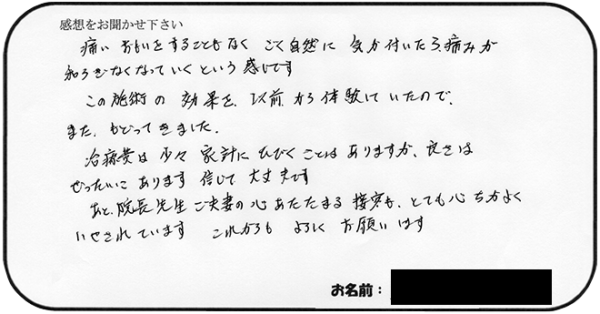 感想をお聞かせ下さい
痛い おもいをすることもなく ごく自然に 気が付いたら、痛みが
和らぎなくなっていくという感じです
この施術の 効果を、以前から体験していたので、
また、もどってきました。
治療費は 少々 家計に ひびくことは ありますが、良さは
ぜったいに あります 信じて 大丈夫です
あと、院長先生 ご夫妻の心あたたまる 接客も、とても心ちがよく
いやされています これからも よろしく お願いします
お名前：